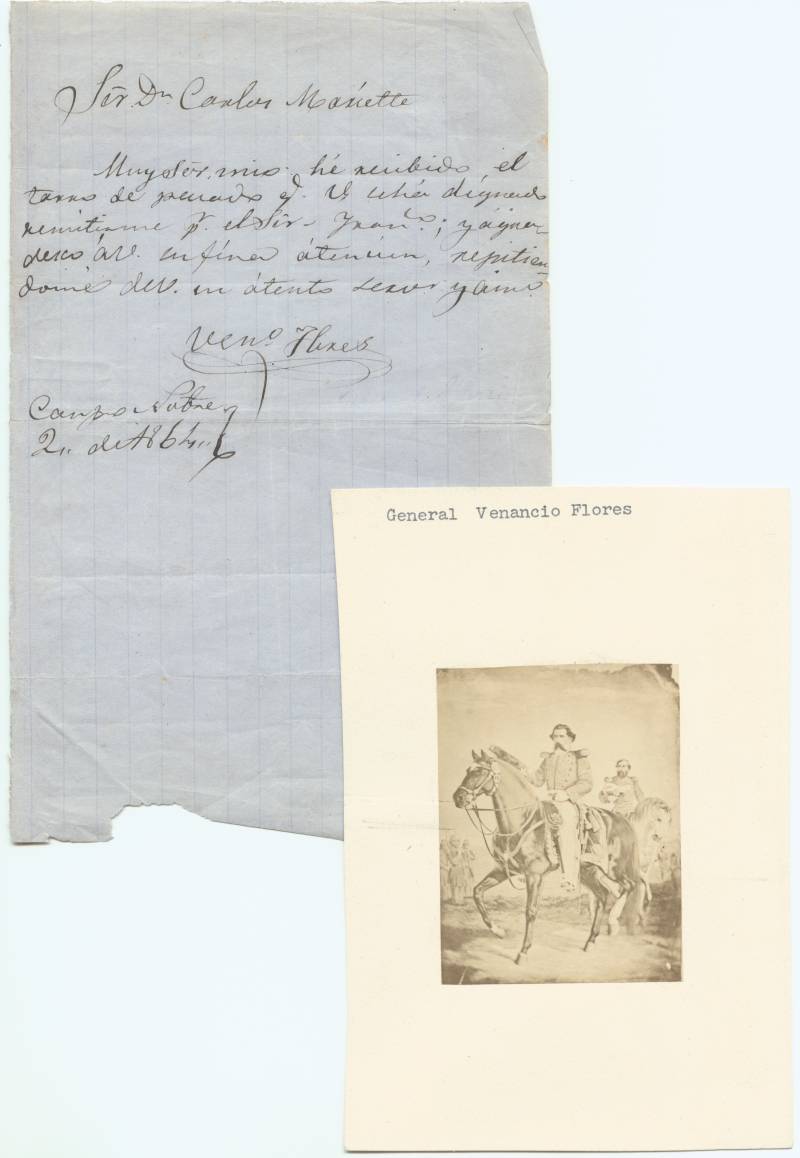 Sōr. Dn Carlos Mariette
Muy Sōr. mio: hé recibido, el
tarro de pescado q. V. se há dignado
remitirme pr. el Sōr. Franco.; y ágra-
desco á V. su fina átencion, repitien-
dome de V. su átento servr. y ámo.
Veno. Flores
Campo Octubre
2,, de 1864,,
General Venancio Flores